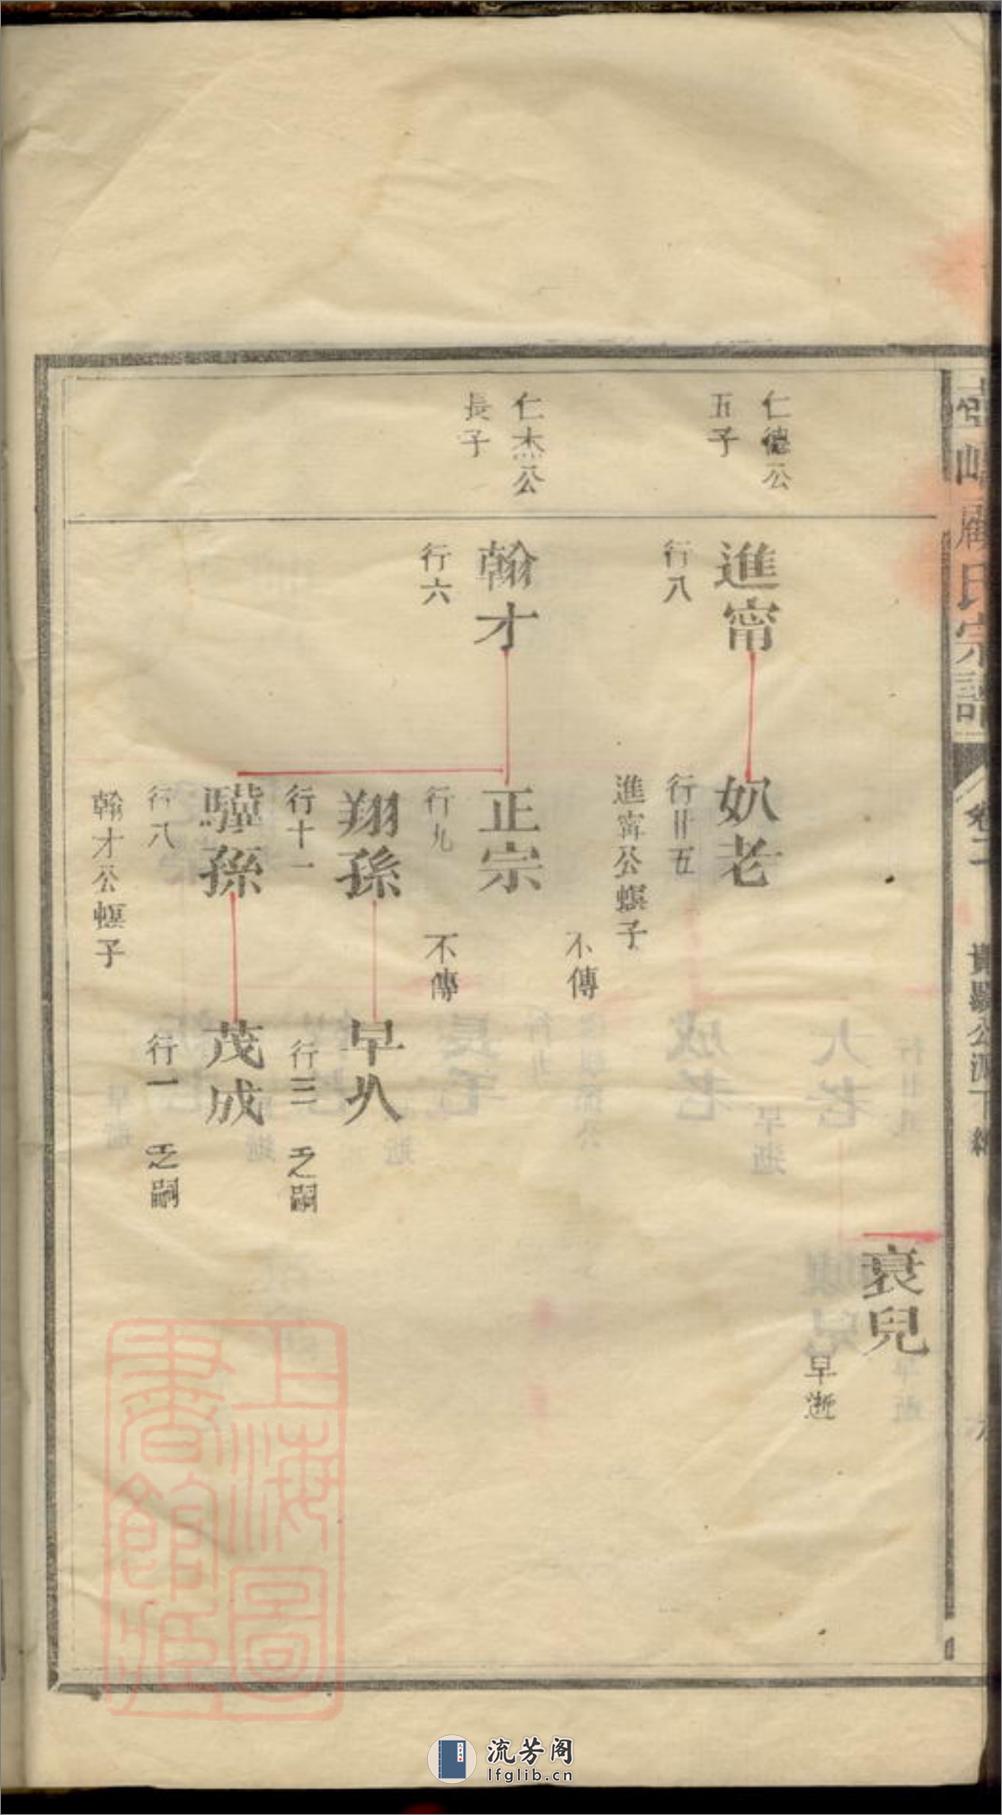 顧氏宗譜
卷二
公派下
仁德公
五子
進甯
行八
奶老
行廿五
進甯公螟子
不傳
仁杰公
長子
翰才
行六
正宗
行九
不傳
翔孫
行十一
早㕥
行三
乏嗣
驥孫
行八
翰才公螟子
茂成
行一
乏嗣
袞兒
早逝
上海圖
書館藏
流芳阁
lfglib.cn